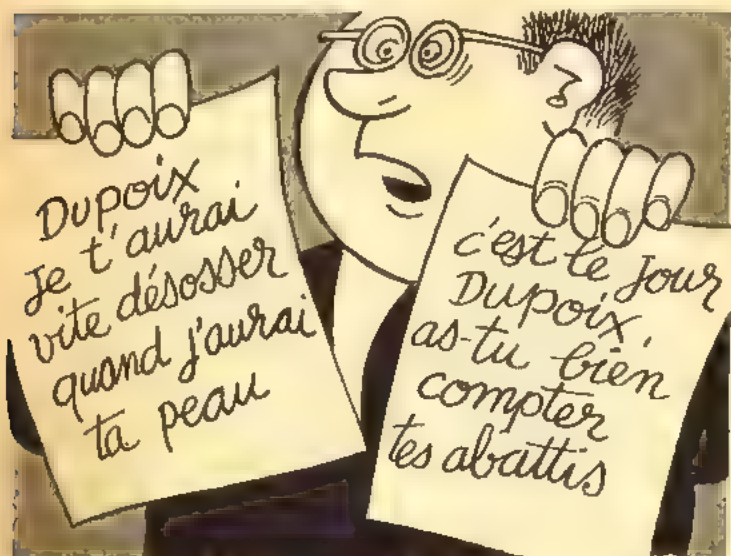 Dupoix
Je t'aurai
vite désosser
quand j'aurai
ta peau
c'est le Jour
Dupoix,
as-tu bien
compter
tes abattis